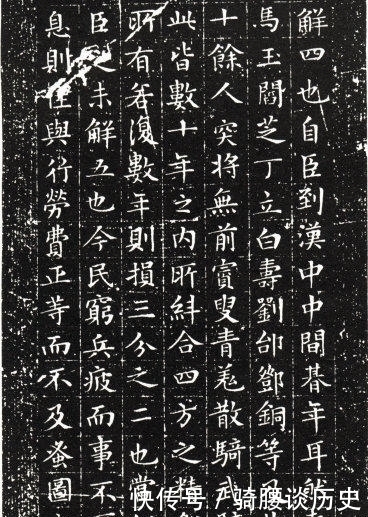 解四也自臣到漢中中間朞年耳然
馬王閻芝丁立白壽劉郃鄧銅等及
十餘人突將無前賨叟青羌散騎武
此皆數十年之内所糾合四方之精
所有若復數年則損三分之二也當
臣之未解五也今民窮兵疲而事不
息則住與行勞費正等而不及蚤圖
快传号 / 骑腰谈历史